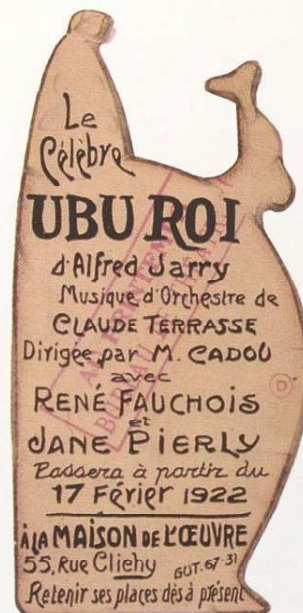 Le
Célèbre
UBU ROI
d'Alfred Jarry
Musique d'Orchestre de
CLAUDE TERRASSE
Dirigée par M. CADOU
avec
RENÉ FAUCHOIS
et
JANE PIERLY
Passera à partir du
17 Février 1922
À LA MAISON DE L'ŒUVRE
55, Rue Clichy GUT. 67-31
Retenir ses places dès à présent
AU PRINTEMPS
D